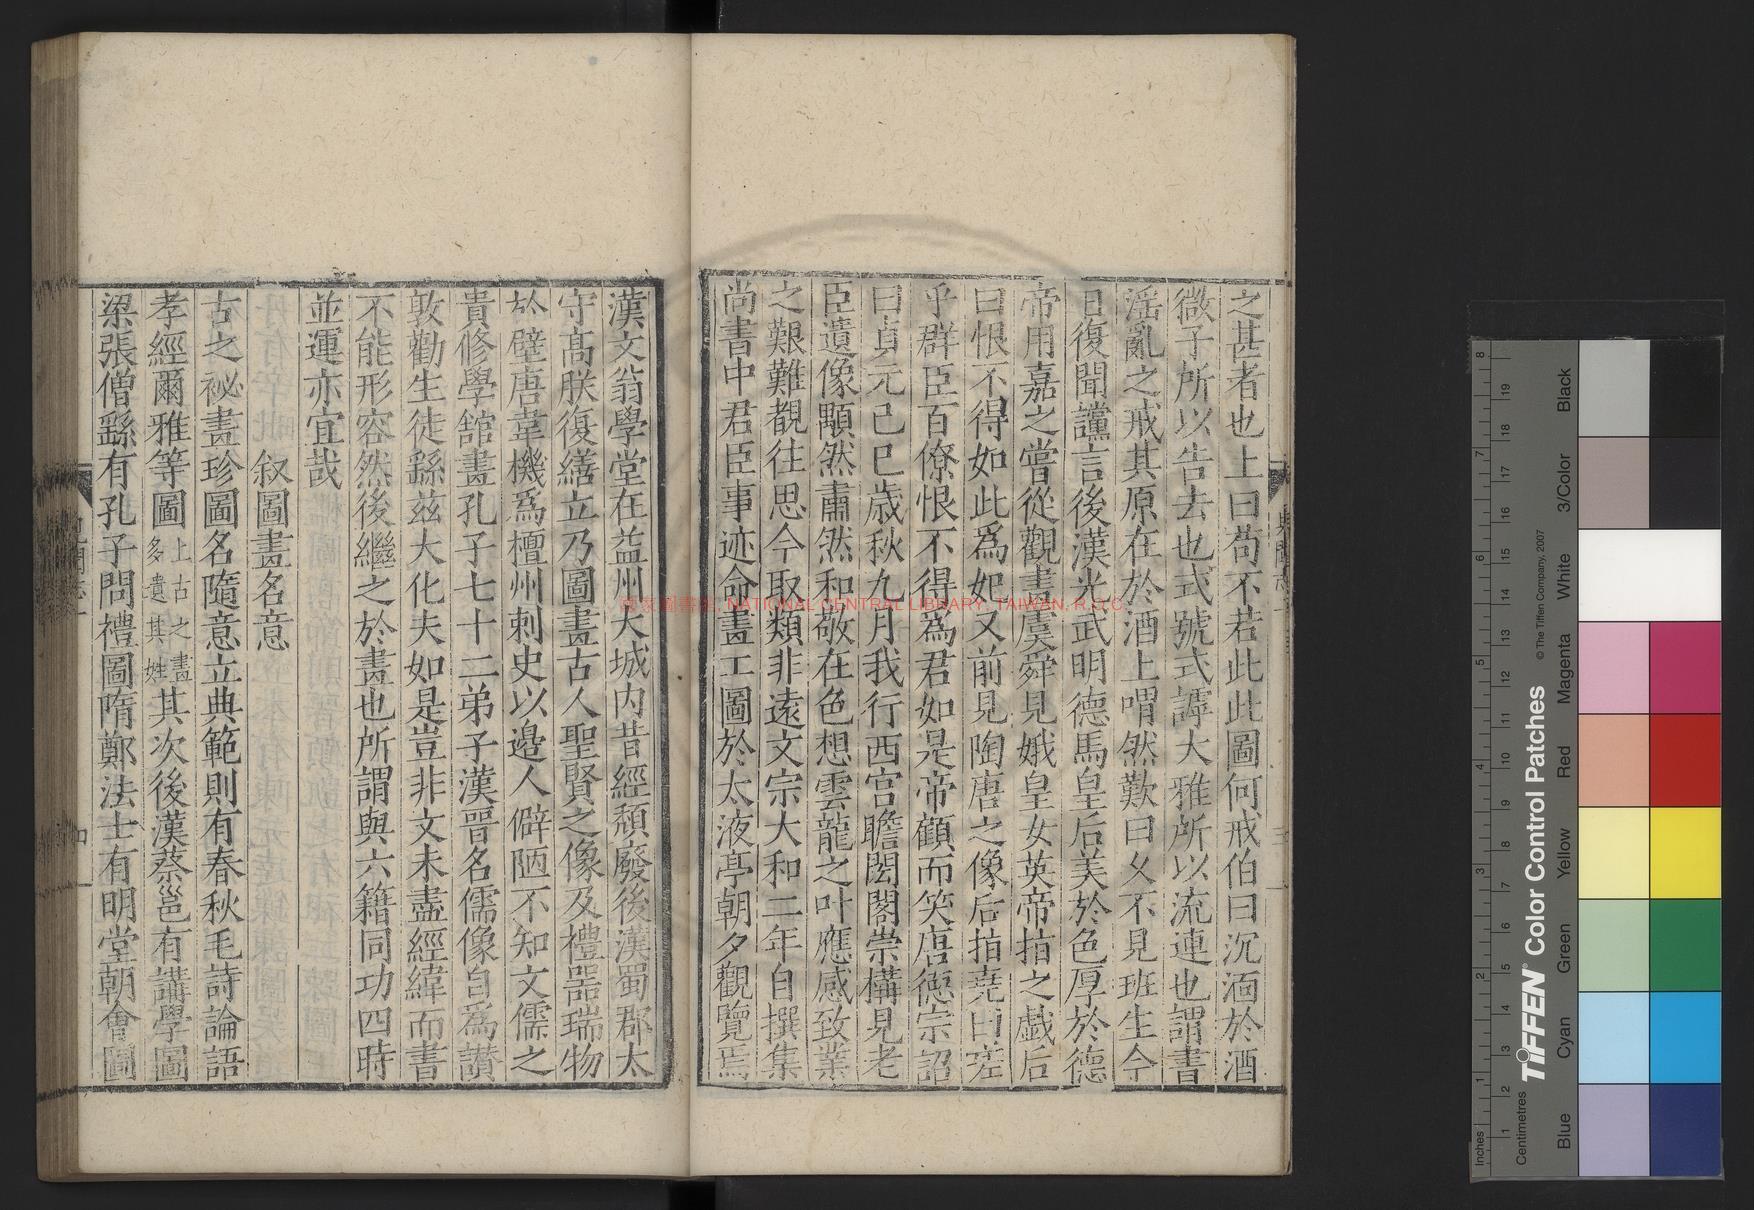 之甚者也上曰苟不若此此圖何戒伯曰沉湎於酒
微子所以告去也式號式謼大雅所以流連也謂書
淫亂之戒其原在於酒上喟然歎曰久不見班生今
日復聞讜言後漢光武明德馬皇后美於色厚於德
帝用嘉之嘗從觀畫虞舜見娥皇女英帝指之戲后
曰恨不得如此爲妃又前見陶唐之像后指堯曰嗟
乎群臣百僚恨不得爲君如是帝顧而笑唐德宗詔
曰貞元己巳歲秋九月我行西宮瞻閎閣崇構見老
臣遺像顒然肅然和敬在色想雲龍之叶應感致業
之艱難覩往思今取類非遠文宗大和二年自撰集
尚書中君臣事迹命畫工圖於太液亭朝夕觀覽焉
漢文翁學堂在益州大城内昔經頹廢後漢蜀郡太
守高朕復繕立乃圖畫古人聖賢之像及禮噐瑞物
於壁唐韋機爲檀州刺史以邊人僻陋不知文儒之
貴修學舘畫孔子七十二弟子漢晋名儒像自爲讃
敦勸生徒繇兹大化夫如是豈非文未盡經緯而書
不能形容然後繼之於畫也所謂與六籍同功四時
並運亦宜哉
叙圖畫名意
古之袐畫珍圖名隨意立典範則有春秋毛詩論語
孝經爾雅等圖上古之畫多遺其姓其次後漢蔡邕有講學圖
梁張僧繇有孔子問禮圖隋鄭法士有明堂朝會圖
NATIONAL CENTRAL LIBRARY, TAIWAN, R.O.C
Inches
Centimetres
TIFFEN® Color Control Patches
© The Tiffen Company, 2007
Blue
Cyan
Green
Yellow
Red
Magenta
White
3/Color
Black